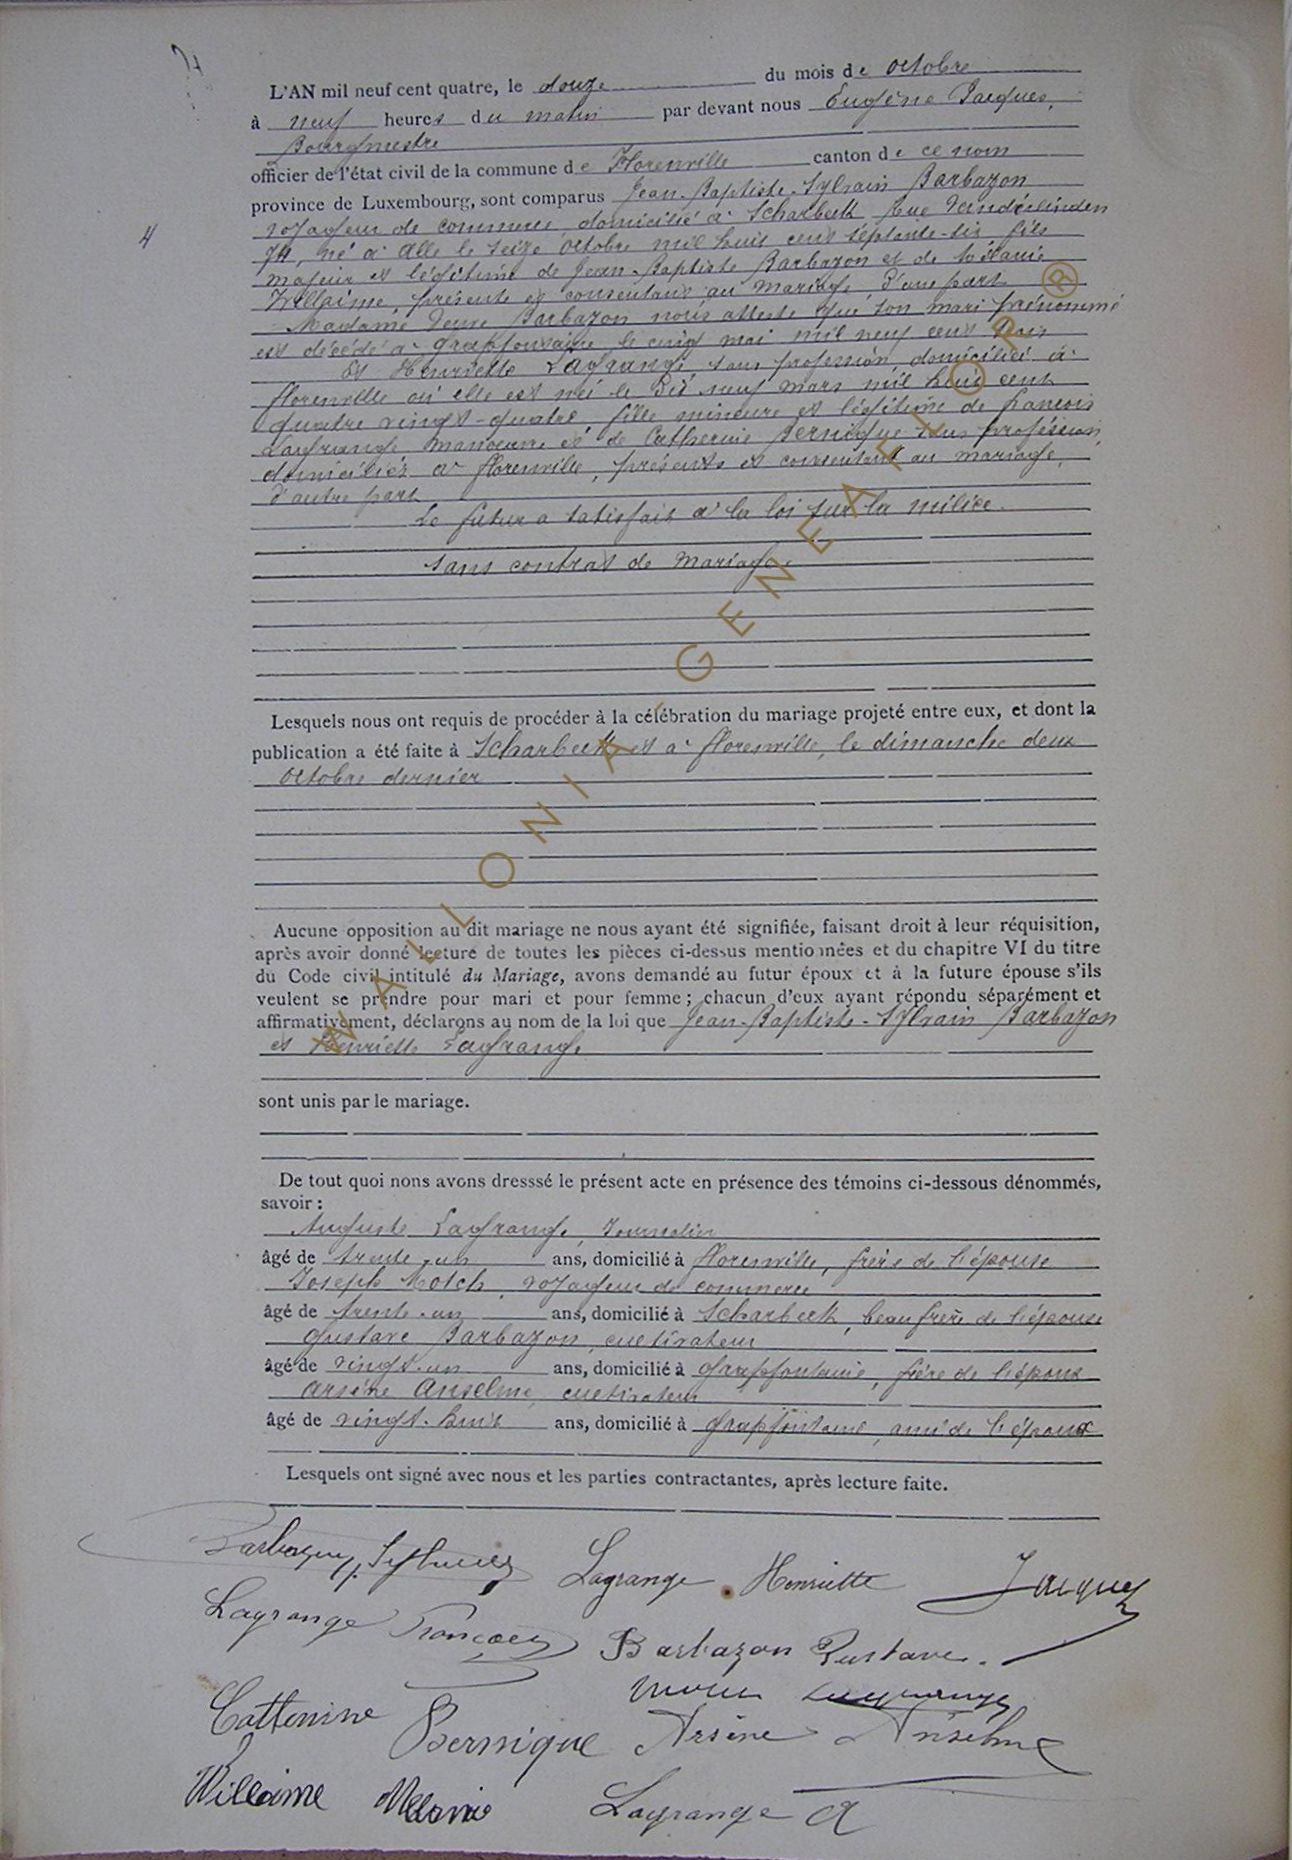 L'AN mil neuf cent quatre, le douze du mois de octobre
à neuf heures du matin par devant nous Eugène Jacques,
Bourgmestre
officier de l'état civil de la commune de Florenville canton de ce nom
province de Luxembourg, sont comparus Jean-Baptiste-Sylvain Barbazon
voyageur de commerce, domicilié à Scharbeek Rue Vanderlinden
né à Alle le seize octobre mil huit cent septante-six fils
majeur et légitime de Jean-Baptiste Barbazon et de Mélanie
Willaime, présente et consentant au mariage d'une part
Madame Veuve Barbazon nous atteste que son mari prénommé
est décédé à Grapfontaine le cinq mai mil neuf cent trois
Et Henriette Lagrange, sans profession, domiciliée à
florenville où elle est née le dix neuf mars mil huit cent
quatre vingt-quatre fille mineure et légitime de françois
Lagrange manoeuvre et de Catherine Bernique sans profession,
domiciliés à florenville, présents et consentant au mariage,
d'autre part
Le futur a satisfait à la loi sur la milice.
Sans contrat de mariage.
Lesquels nous ont requis de procéder à la célébration du mariage projeté entre eux, et dont la
publication a été faite à Scharbeek et à florenville, le dimanche deux
octobre dernier
Aucune opposition au dit mariage ne nous ayant été signifiée, faisant droit à leur réquisition,
après avoir donné lecture de toutes les pièces ci-dessus mentionnées et du chapitre VI du titre
du Code civil intitulé du Mariage, avons demandé au futur époux et à la future épouse s'ils
veulent se prendre pour mari et pour femme ; chacun d'eux ayant répondu séparément et
affirmativement, déclarons au nom de la loi que Jean-Baptiste-Sylvain Barbazon
et Henriette Lagrange
sont unis par le mariage.
De tout quoi nons avons dresssé le présent acte en présence des témoins ci-dessous dénommés,
savoir :
Auguste Lagrange, Journalier
âgé de trente-un ans, domicilié à florenville, frère de l'épouse
Joseph Molch, voyageur de commerce
âgé de trente-un ans, domicilié à Scharbeek, beau frère de l'épouse
Gustave Barbazon, cultivateur
âgé de vingt-un ans, domicilié à Grapfontaine, frère de l'époux
Arsène Anselme, cultivateur
âgé de vingt-huit ans, domicilié à Grapfontaine, ami de l'époux
Lesquels ont signé avec nous et les parties contractantes, après lecture faite.
Barbazon Sylvain Lagrange Henriette Jacques
Lagrange François Barbazon Gustave.
Lagrange
Catterine Bernique Arsène Anselme
Willaime Mélanie Lagrange A
4
WALLONIA-GENEAFLOR®